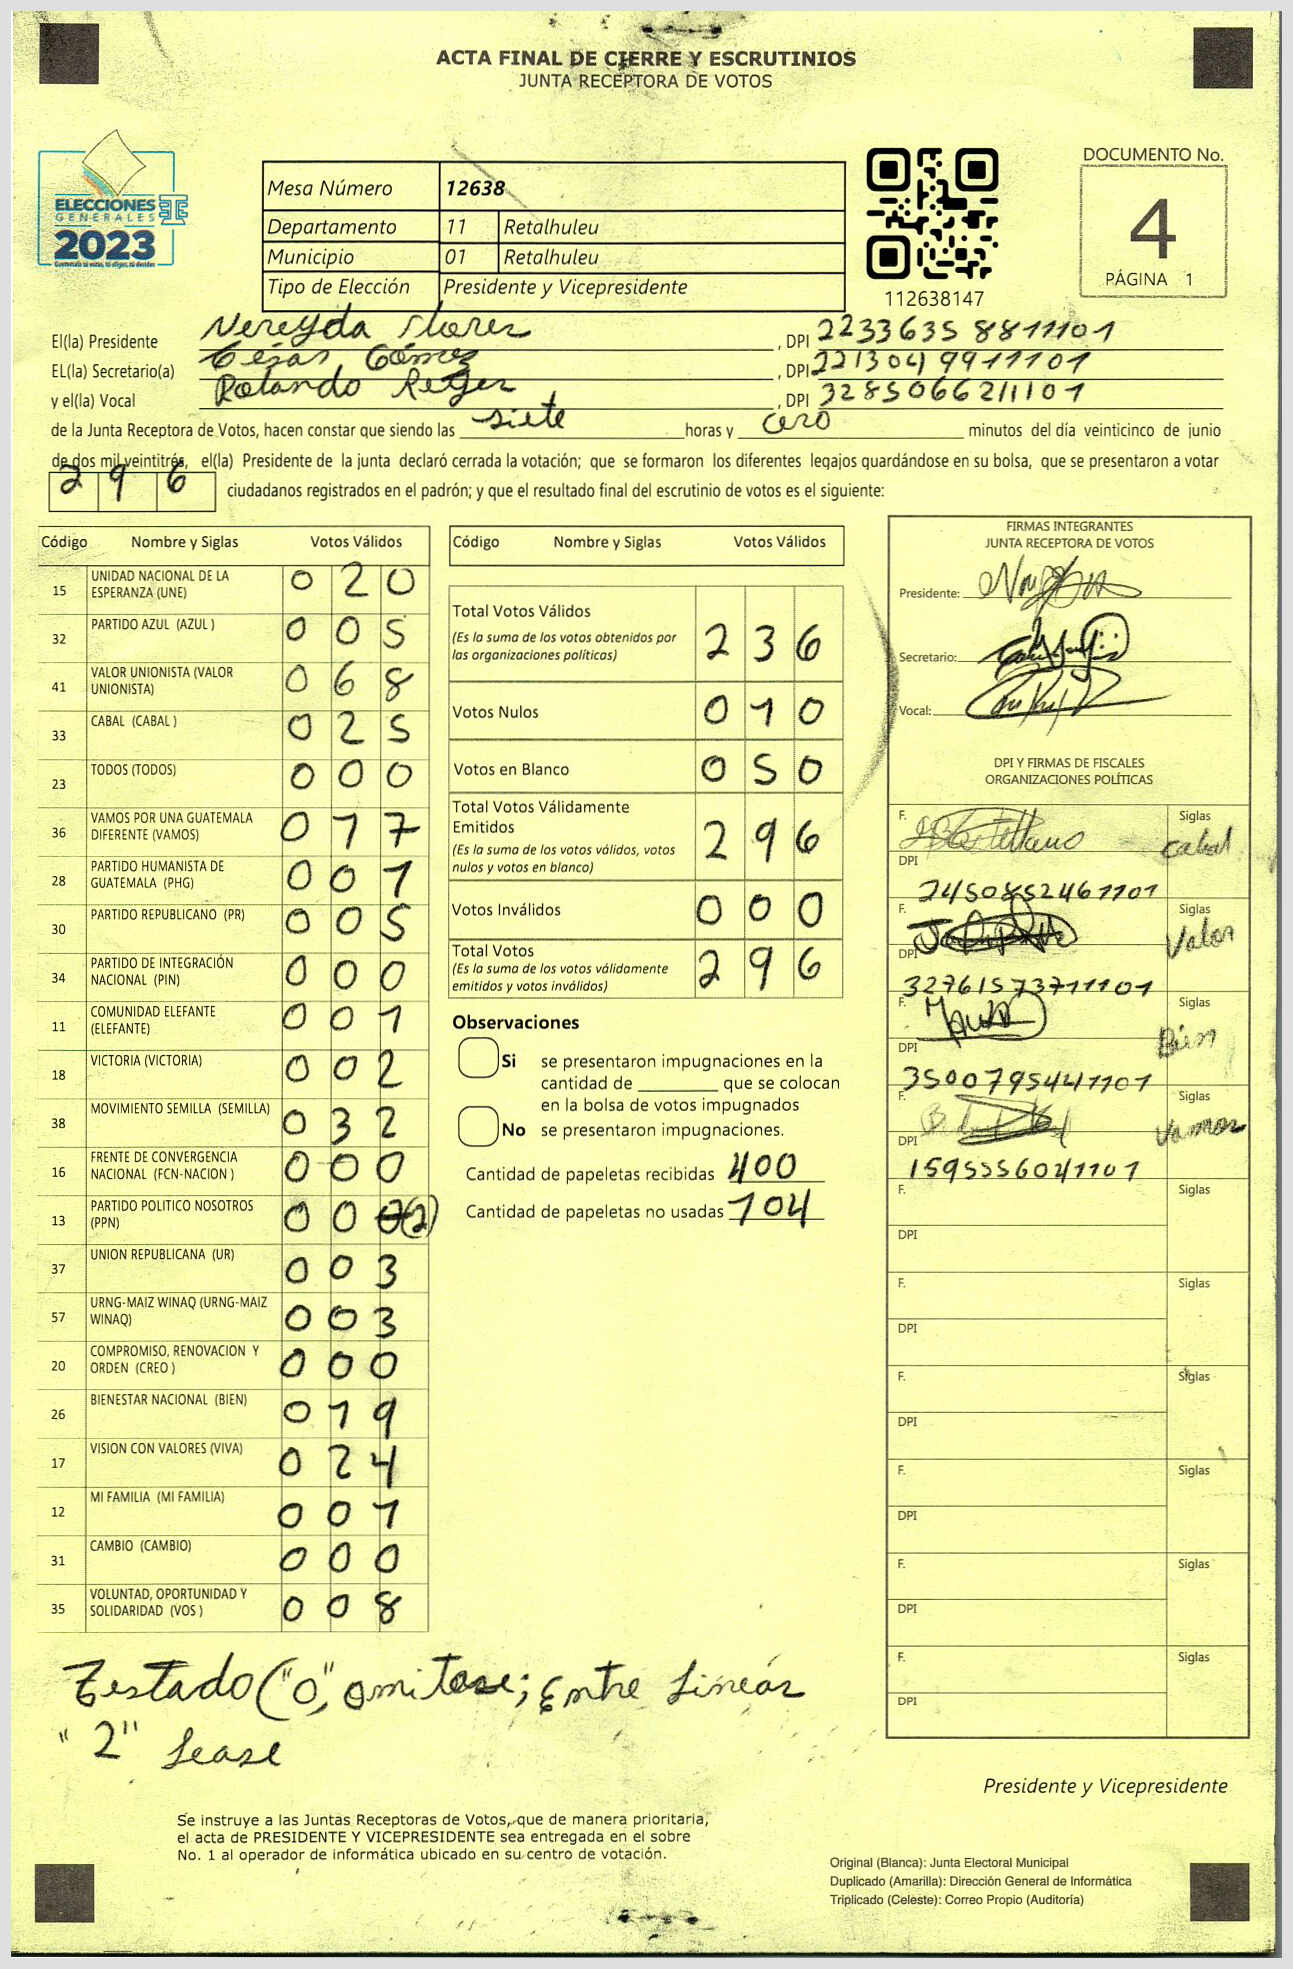 ACTA FINAL DE CIERRE Y ESCRUTINIOS
JUNTA RECEPTORA DE VOTOS
ELECCIONES
GENERALES
2023
Mesa Número 12638
Departamento 11 Retalhuleu
Municipio 01 Retalhuleu
Tipo de Elección Presidente y Vicepresidente
112638147
DOCUMENTO No.
4
PÁGINA 1
El(la) Presidente Nereyda Flores, DPI 2233635 8811101
EL(la) Secretario(a) César Gómez, DPI 221304991101
y el(la) Vocal Rolando Reyes, DPI 3285066211101
de la Junta Receptora de Votos, hacen constar que siendo las siete horas y cero minutos del día veinticinco de junio
de dos mil veintitrés, el(la) Presidente de la junta declaró cerrada la votación; que se formaron los diferentes legajos guardándose en su bolsa, que se presentaron a votar
296 ciudadanos registrados en el padrón; y que el resultado final del escrutinio de votos es el siguiente:
Código Nombre y Siglas Votos Válidos
15 UNIDAD NACIONAL DE LA ESPERANZA (UNE) 0 2 0
32 PARTIDO AZUL (AZUL ) 0 0 5
41 VALOR UNIONISTA (VALOR UNIONISTA) 0 6 8
33 CABAL (CABAL ) 0 2 5
23 TODOS (TODOS) 0 0 0
36 VAMOS POR UNA GUATEMALA DIFERENTE (VAMOS) 0 1 7
28 PARTIDO HUMANISTA DE GUATEMALA (PHG) 0 0 1
30 PARTIDO REPUBLICANO (PR) 0 0 5
34 PARTIDO DE INTEGRACIÓN NACIONAL (PIN) 0 0 0
11 COMUNIDAD ELEFANTE (ELEFANTE) 0 0 1
18 VICTORIA (VICTORIA) 0 0 2
38 MOVIMIENTO SEMILLA (SEMILLA) 0 3 2
16 FRENTE DE CONVERGENCIA NACIONAL (FCN-NACION ) 0 0 0
13 PARTIDO POLITICO NOSOTROS (PPN) 0 0 0(2)
37 UNION REPUBLICANA (UR) 0 0 3
57 URNG-MAIZ WINAQ (URNG-MAIZ WINAQ) 0 0 3
20 COMPROMISO, RENOVACION Y ORDEN (CREO ) 0 0 0
26 BIENESTAR NACIONAL (BIEN) 0 1 9
17 VISION CON VALORES (VIVA) 0 2 4
12 MI FAMILIA (MI FAMILIA) 0 0 1
31 CAMBIO (CAMBIO) 0 0 0
35 VOLUNTAD, OPORTUNIDAD Y SOLIDARIDAD (VOS ) 0 0 8
Código Nombre y Siglas Votos Válidos
Total Votos Válidos 2 3 6
(Es la suma de los votos obtenidos por
las organizaciones políticas)
Votos Nulos 0 1 0
Votos en Blanco 0 5 0
Total Votos Válidamente
Emitidos 2 9 6
(Es la suma de los votos válidos, votos
nulos y votos en blanco)
Votos Inválidos 0 0 0
Total Votos 2 9 6
(Es la suma de los votos válidamente
emitidos y votos inválidos)
Observaciones
Si se presentaron impugnaciones en la
cantidad de ________ que se colocan
en la bolsa de votos impugnados
No se presentaron impugnaciones.
Cantidad de papeletas recibidas 400
Cantidad de papeletas no usadas 104
FIRMAS INTEGRANTES
JUNTA RECEPTORA DE VOTOS
Presidente:
Secretario:
Vocal:
DPI Y FIRMAS DE FISCALES
ORGANIZACIONES POLÍTICAS
F. Siglas Cabal
DPI 2450852461101
F. Siglas Valor
DPI 3276157371101
F. Siglas Bien
DPI 3500795441101
F. Siglas Vamos
DPI 1595556041101
F. Siglas
DPI
F. Siglas
DPI
F. Siglas
DPI
F. Siglas
DPI
F. Siglas
DPI
F. Siglas
DPI
Testado ("0", omitase; Entre lineas
"2" Lease
Presidente y Vicepresidente
Se instruye a las Juntas Receptoras de Votos, que de manera prioritaria,
el acta de PRESIDENTE Y VICEPRESIDENTE sea entregada en el sobre
No. 1 al operador de informática ubicado en su centro de votación.
Original (Blanca): Junta Electoral Municipal
Duplicado (Amarilla): Dirección General de Informática
Triplicado (Celeste): Correo Propio (Auditoría)